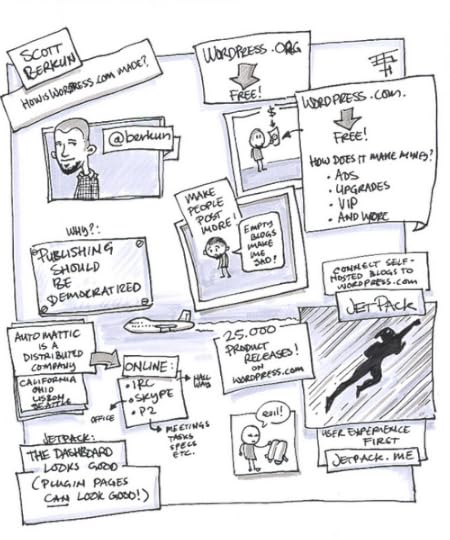 SCOTT
BERKUN
HOW IS WORDPRESS.COM MADE?
@berkun
WORDPRESS.ORG
FREE!
WORDPRESS.COM
FREE!
HOW DOES IT MAKE MONEY?
• ADS
• UPGRADES
• VIP
• AND MORE
$
$
MAKE
PEOPLE
POST
MORE!
EMPTY
BLOGS
MAKE
ME
SAD!
WHY?:
PUBLISHING
SHOULD
BE
DEMOCRATIZED
CONNECT SELF-
HOSTED BLOGS TO
WORDPRESS.COM
JETPACK
AUTOMATTIC
IS A
DISTRIBUTED
COMPANY
CALIFORNIA
OHIO
LISBON
SEATTLE
ONLINE:
• IRC
• SKYPE
• P2
HALL
WAY
OFFICE
MEETINGS
TASKS
SPECS
ETC.
25.000
PRODUCT
RELEASES!
ON
WORDPRESS.COM
JETPACK:
THE DASHBOARD
LOOKS GOOD
(PLUGIN PAGES
CAN LOOK GOOD!)
USER EXPERIENCE
FIRST
JETPACK.ME